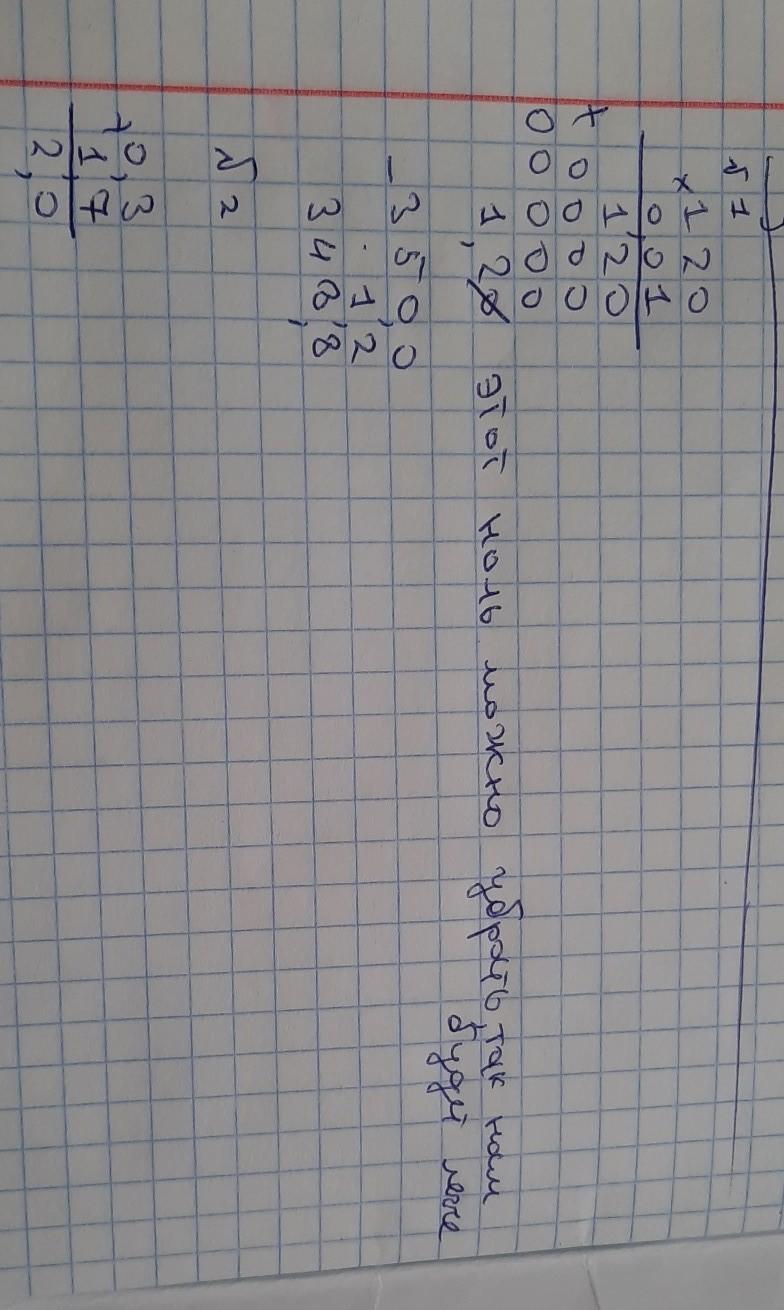 №1
×120
0,01
1,20
+ 000
0000
1,20 этот ноль можно убрать, так нам
будет легче
-350,0
1,2
348,8
№2
+0,3
1,7
2,0